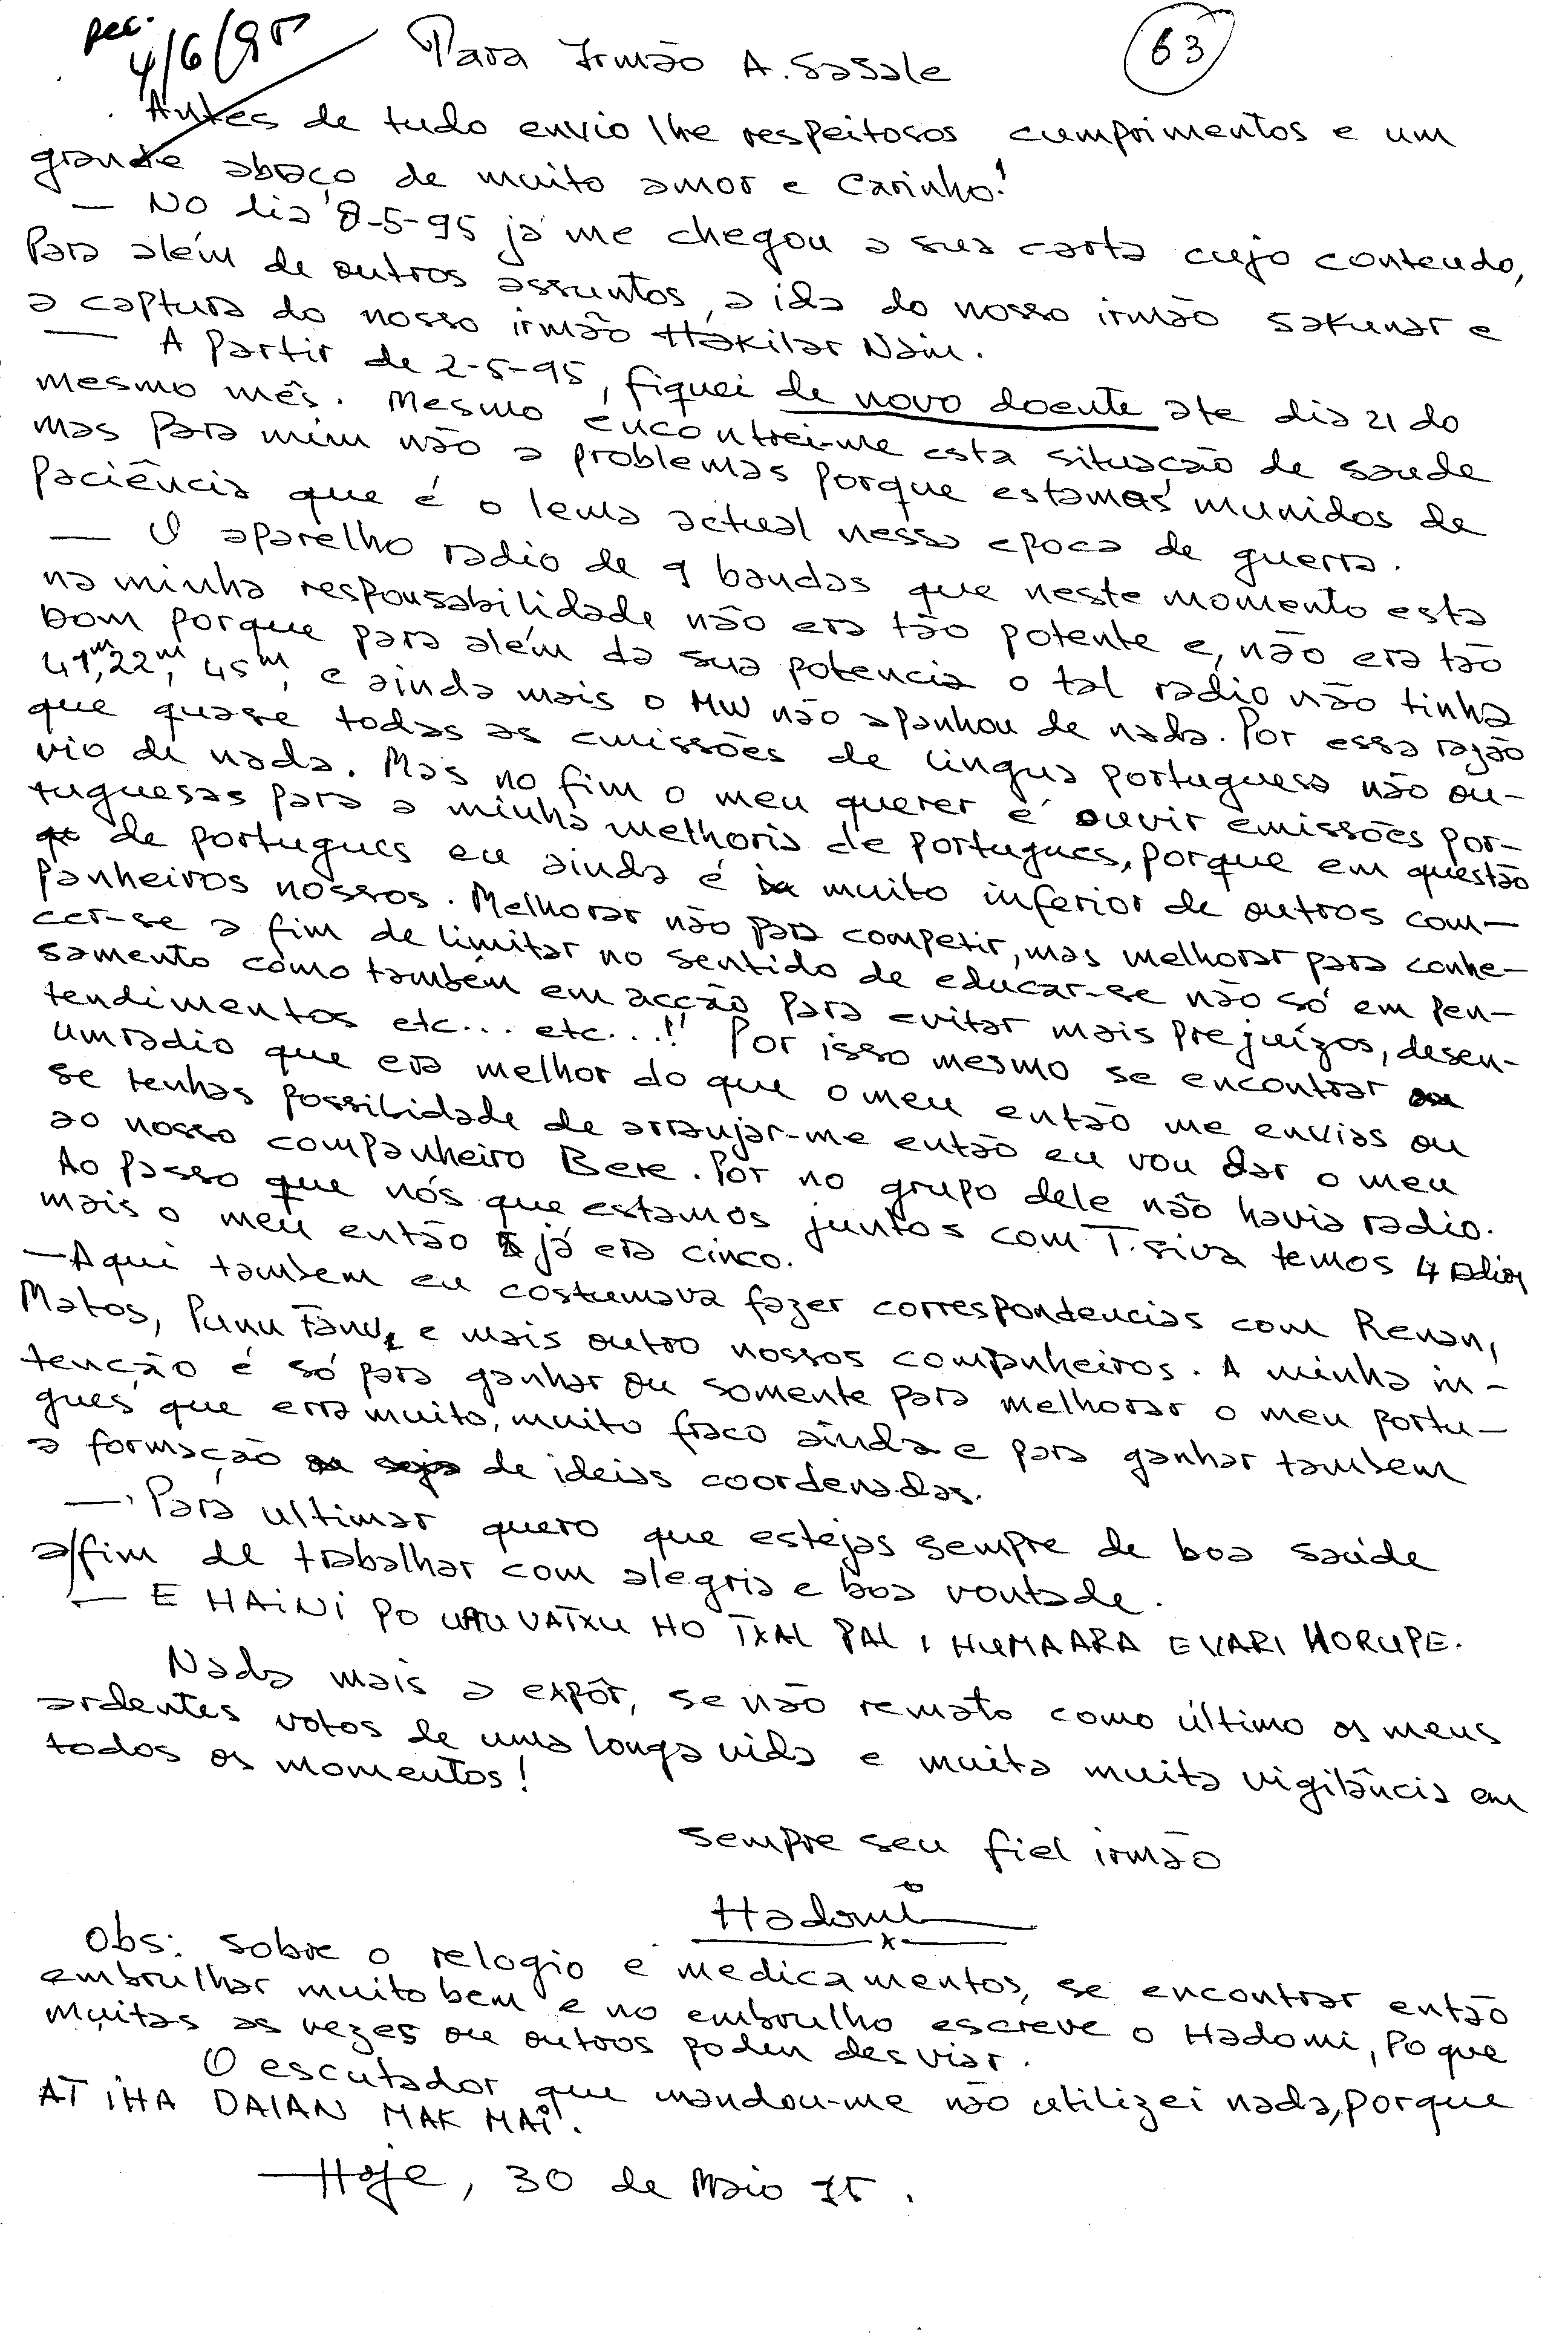 Rec.
4/6/95
Para Irmão A. Sasale
63
Antes de tudo envio lhe respeitosos cumprimentos e um
grande abraço de muito amor e Carinho!
— No dia 8-5-95 já me chegou a sua carta cujo conteudo,
Para além de outros assuntos, a ida do nosso irmão Sakunar e
a captura do nosso irmão Hákilar Nain.
— A Partir de 2-5-95, fiquei de novo doente ate dia 21 do
mesmo mês. Mesmo encontrei-me esta situação de saude
mas Para mim não a problemas porque estamos munidos de
Paciência que é o lema actual nessa epoca de guerra.
— O aparelho radio de 9 bandas que neste momento esta
na minha responsabilidade não era tão potente e, não era tão
bom porque para além da sua potencia o tal radio não tinha
41m, 22m, 45m, e ainda mais o MW não apanhou de nada. Por essa razão
que quase todas as emissões de lingua portuguesa não ou-
vio de nada. Mas no fim o meu querer é ouvir emissões por-
tuguesas para a minha melhoria de Portugues, porque em questão
de portugues eu ainda é muito inferior de outros com-
panheiros nossos. Melhorar não para competir, mas melhorar para conhe-
cer-se a fim de limitar no sentido de educar-se não só em pen-
samento como também em acção para evitar mais prejuízos, desen-
tendimentos etc... etc...!! Por isso mesmo se encontrar
um radio que era melhor do que o meu então me envias ou
se tenhas possibilidade de arranjar-me então eu vou dar o meu
ao nosso companheiro Bere. Por no grupo dele não havia radio.
Ao Passo que nós que estamos juntos com T. siva temos 4 rádios
mais o meu então já era cinco.
— Aqui tambem eu costumava fazer correspondencias com Renan,
Matos, e mais outro nossos companheiros. A minha in-
tenção é só para ganhar ou somente para melhorar o meu portu-
gues que erra muito, muito fraco ainda e para ganhar tambem
a formação ou seja de ideias coordenadas.
— Para ultimar quero que estejas sempre de boa saúde
a fim de trabalhar com alegria e boa vontade.
— E HAINI PO UAU VAIXU HO IXAL PAL, HUMAARA EVARI HORUPE.
Nada mais a expôr, se não remato como último os meus
ardentes votos de uma longa vida e muita muita vigilância em
todos os momentos!
Sempre seu fiel irmão
Hadomi
Obs: Sobre o relogio e medicamentos, se encontrar então
embrulhar muito bem e no embrulho escreve o Hadomi, Po que
muitas as vezes ou outros podem desviar.
O escutador que mandou-me não utilizei nada, porque
AT IHA DAIAN MAK MAI.
Hoje, 30 de Maio 95.